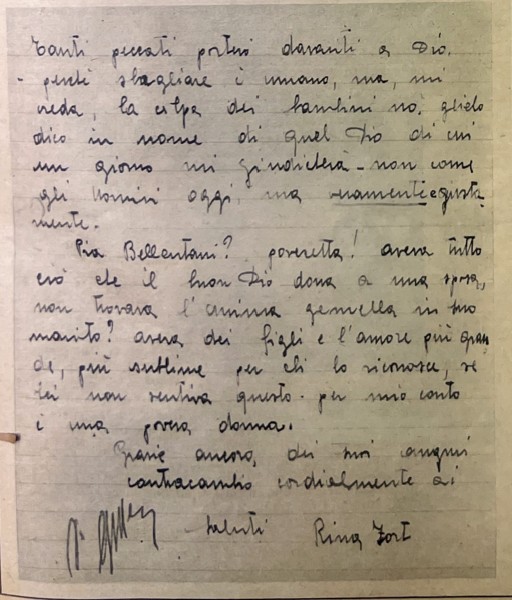 Tanti peccati porterò davanti a Dio.
perchè sbagliare è umano, ma, mi
creda, la colpa dei bambini no. glielo
dico in nome di quel Dio di cui
un giorno mi giudicherà - non come
gli uomini oggi, ma umanamente e giusta
mente.
Pia Bellentani? poveretta! aveva tutto
ciò che il buon Dio dona a una sposa,
non trovava l'anima gemella in suo
marito? aveva dei figli e l'amore più gran
de, più sublime per chi lo riconosce, se
lei non sentiva questo. per mio conto
è una povera donna.
Grazie ancora, dei suoi auguri
contracambio cordialmente ai
saluti Rina Fort